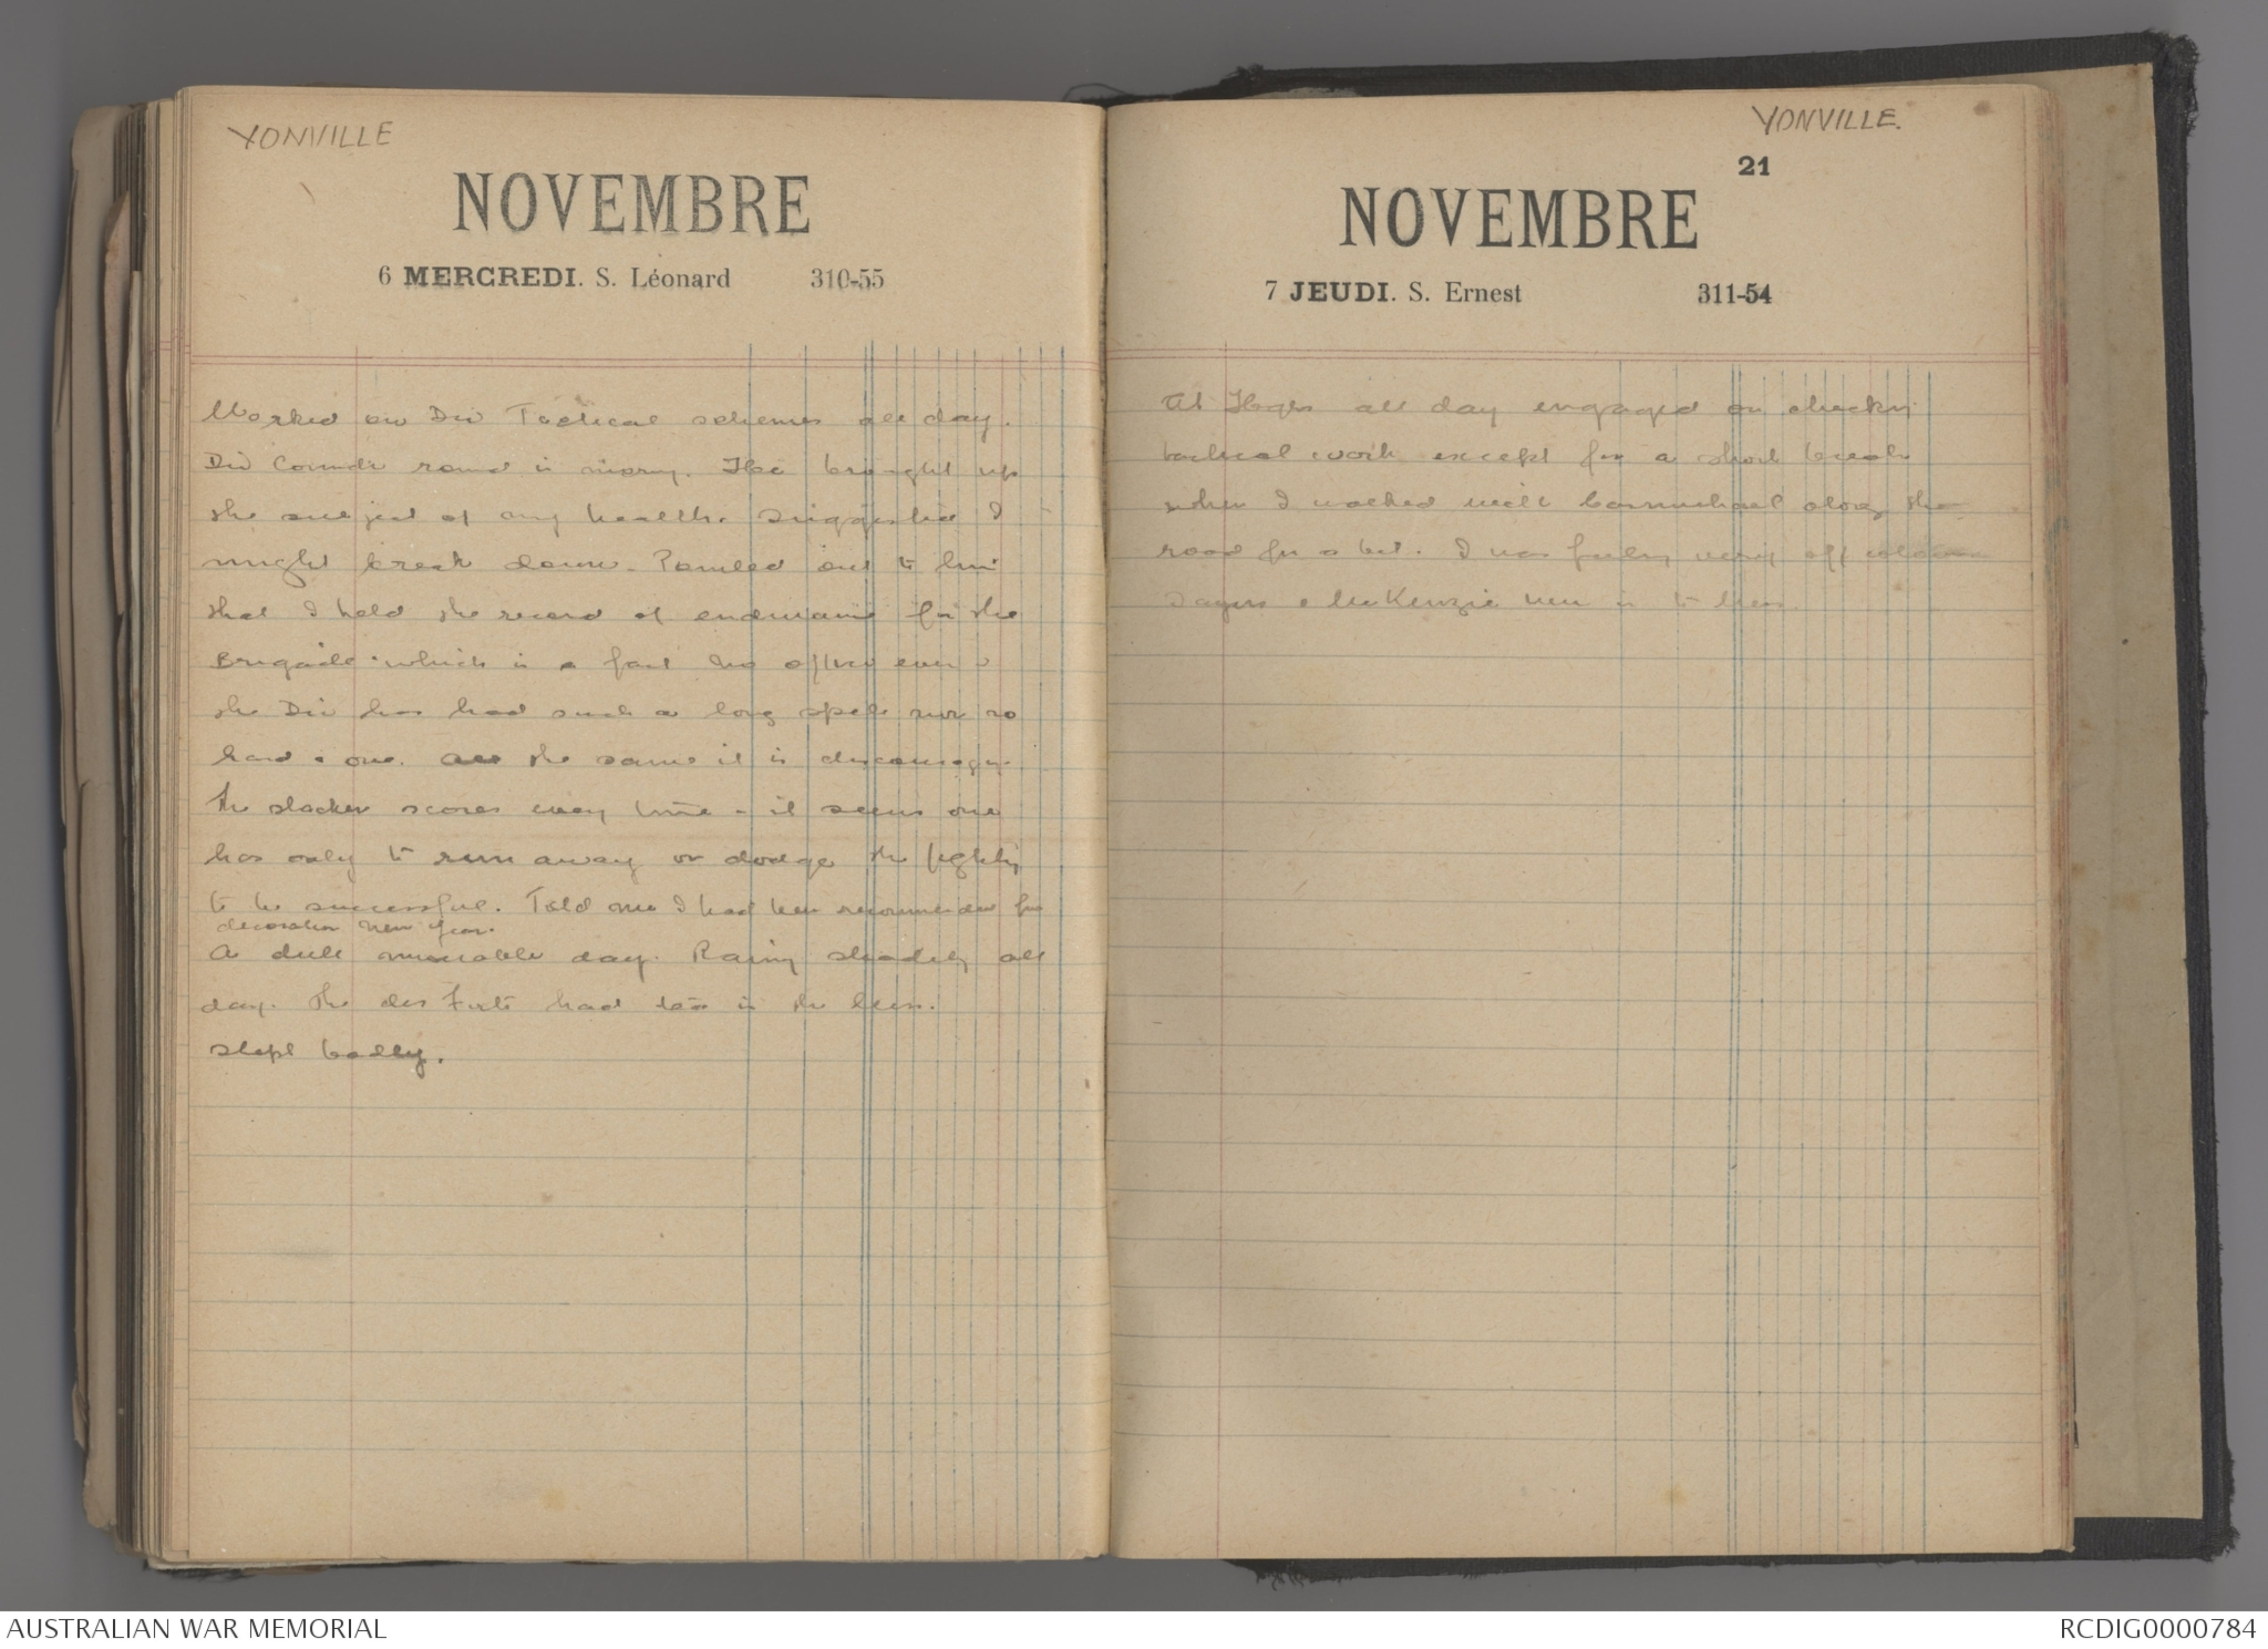 YONVILLE
NOVEMBRE
6 MERCREDI. S. Léonard 310-55
Worked on Div Tactical schemes all day.
Div Comdr round in morng. Has brought up
the subject of my health. Suggested I
might break down. Pointed out to him
that I held the record of endurance for the
Brigade which is a fact no officer even in
the Div has had such a long spell nor so
hard a one. All the same it is discouragg.
The slacker scores every time - it seems one
has only to run away or dodge the fightg
to be successful. Told me I had been recommended for
decoration New Year.
A dull miserable day. Raing steadily all
day. The des Forts had tea in the
slept badly.
YONVILLE.
21
NOVEMBRE
7 JEUDI. S. Ernest 311-54
At Hqrs all day engaged on checkg
tactical work except for a short break
when I walked with Carmichael along the
road for a bit. I was feeling very off
Sayers & McKenzie were in to
AUSTRALIAN WAR MEMORIAL
RCDIG0000784